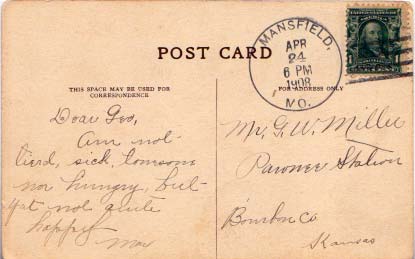 POST CARD
MANSFIELD,
APR
24
6 PM
1908
MO.
THIS SPACE MAY BE USED FOR
CORRESPONDENCE
FOR ADDRESS ONLY
Dear Geo,
Am not
tierd, sick, lonesome
nor hungry, but
yet not quite
happy
Mr. G. W. Miller
Pawnee Station
Bourbon Co
Kansas